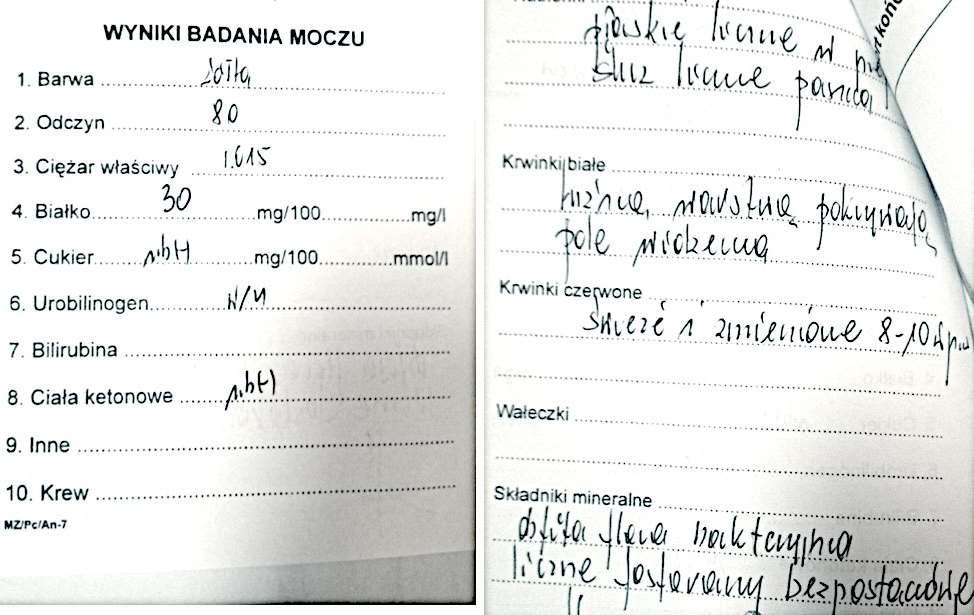 WYNIKI BADANIA MOCZU
1. Barwa żółta
2. Odczyn 80
3. Ciężar właściwy 1.015
4. Białko 30 mg/100 mg/l
5. Cukier n.b(-) mg/100 mmol/l
6. Urobilinogen w/n
7. Bilirubina
8. Ciała ketonowe n.b(-)
9. Inne
10. Krew
MZ/Pc/An-7
płaskie liczne w
śluz liczne pasma
Krwinki białe
luźną warstwą pokrywają
pole widzenia
Krwinki czerwone
świeże i zmienione 8-10 w p.w
Wałeczki
Składniki mineralne
obfita flora bakteryjna
liczne fosforany bezpostaciowe